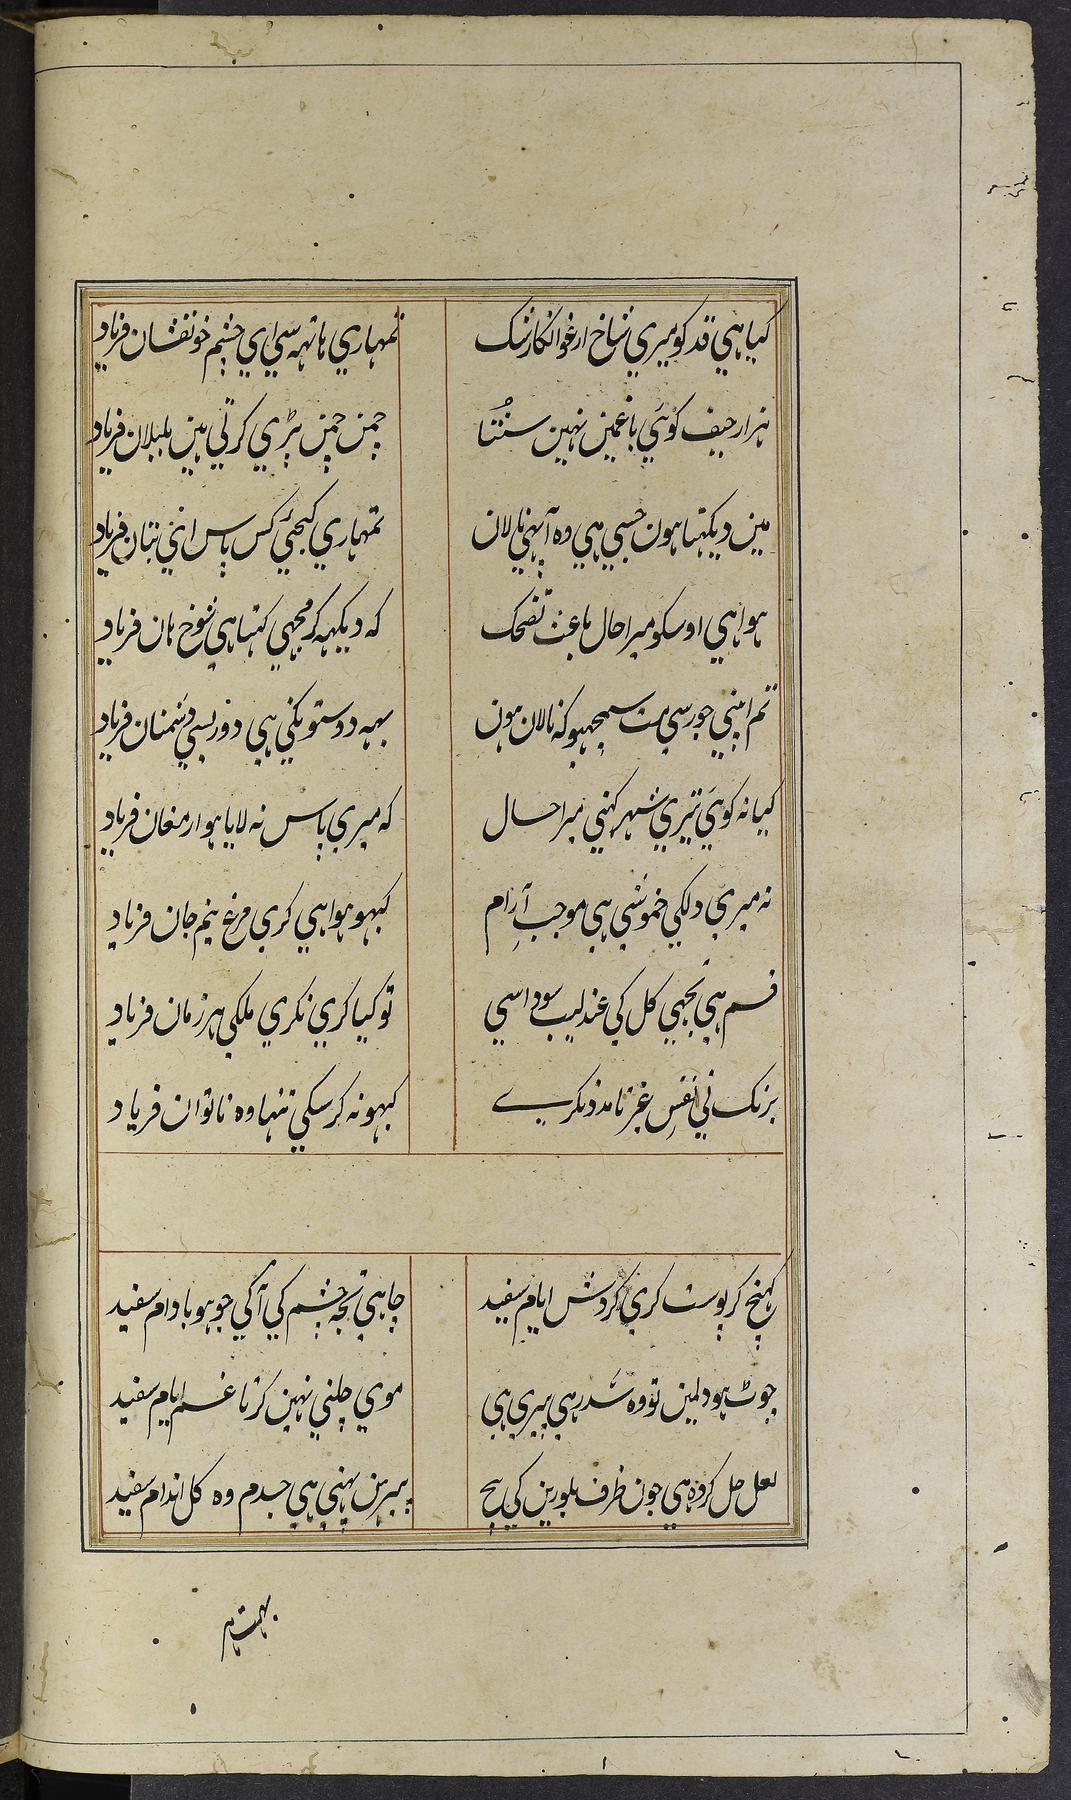 کیا هي قد کو میري شاخ ارغوانکا رنک تمهاري هاتهه سي اي چشم خونفشان فریاد
هزار حیف کوئي باغمین نهین سنُتا چمن چمن پڑي کرتي هین بلبلان فریاد
مین دیکهتا هون جسي هي وه آپهي نالان تمهاري کیجیئ کس پاس اني بتان فریاد
هوا هي اوسکو میرا حال باعث تضحک که دیکهه کر مجهي کهتا هي شوخ هان فریاد
تم اپني جور سي مت سمجهیو که نالان هون یهه دوستونکي هي دوریسي دشمنان فریاد
کیا نه کوئي تیري شهر کهني میرا حال که میري پاس نه لایا هو ارمغان فریاد
نه میري دلکي خموشي هي موجبِ آرام کبهو هوا هي کري مرغ نیم جان فریاد
قسم هي تجهي کل کي عندلیب سودا سي تو کیا کري نکري ملکي هر زمان فریاد
برنک ني نفسِ غیر تا مدد نکرے کبهو نه کر سکي تنها وه ناتوان فریاد
کهنچ کر پوست کري کردش ایام سفید چاهي تجه چشم کي آکي جو هو بادام سفید
چوٹ هو دلمین تو وه شدرهي پیري هي موي چلني نهین کرتا غم ایام سفید
لعل حل کرده هي جون ظرف بلورین کي بیچ پیرهن پهني هي جسدم وه کل اندام سفید
بهت هر